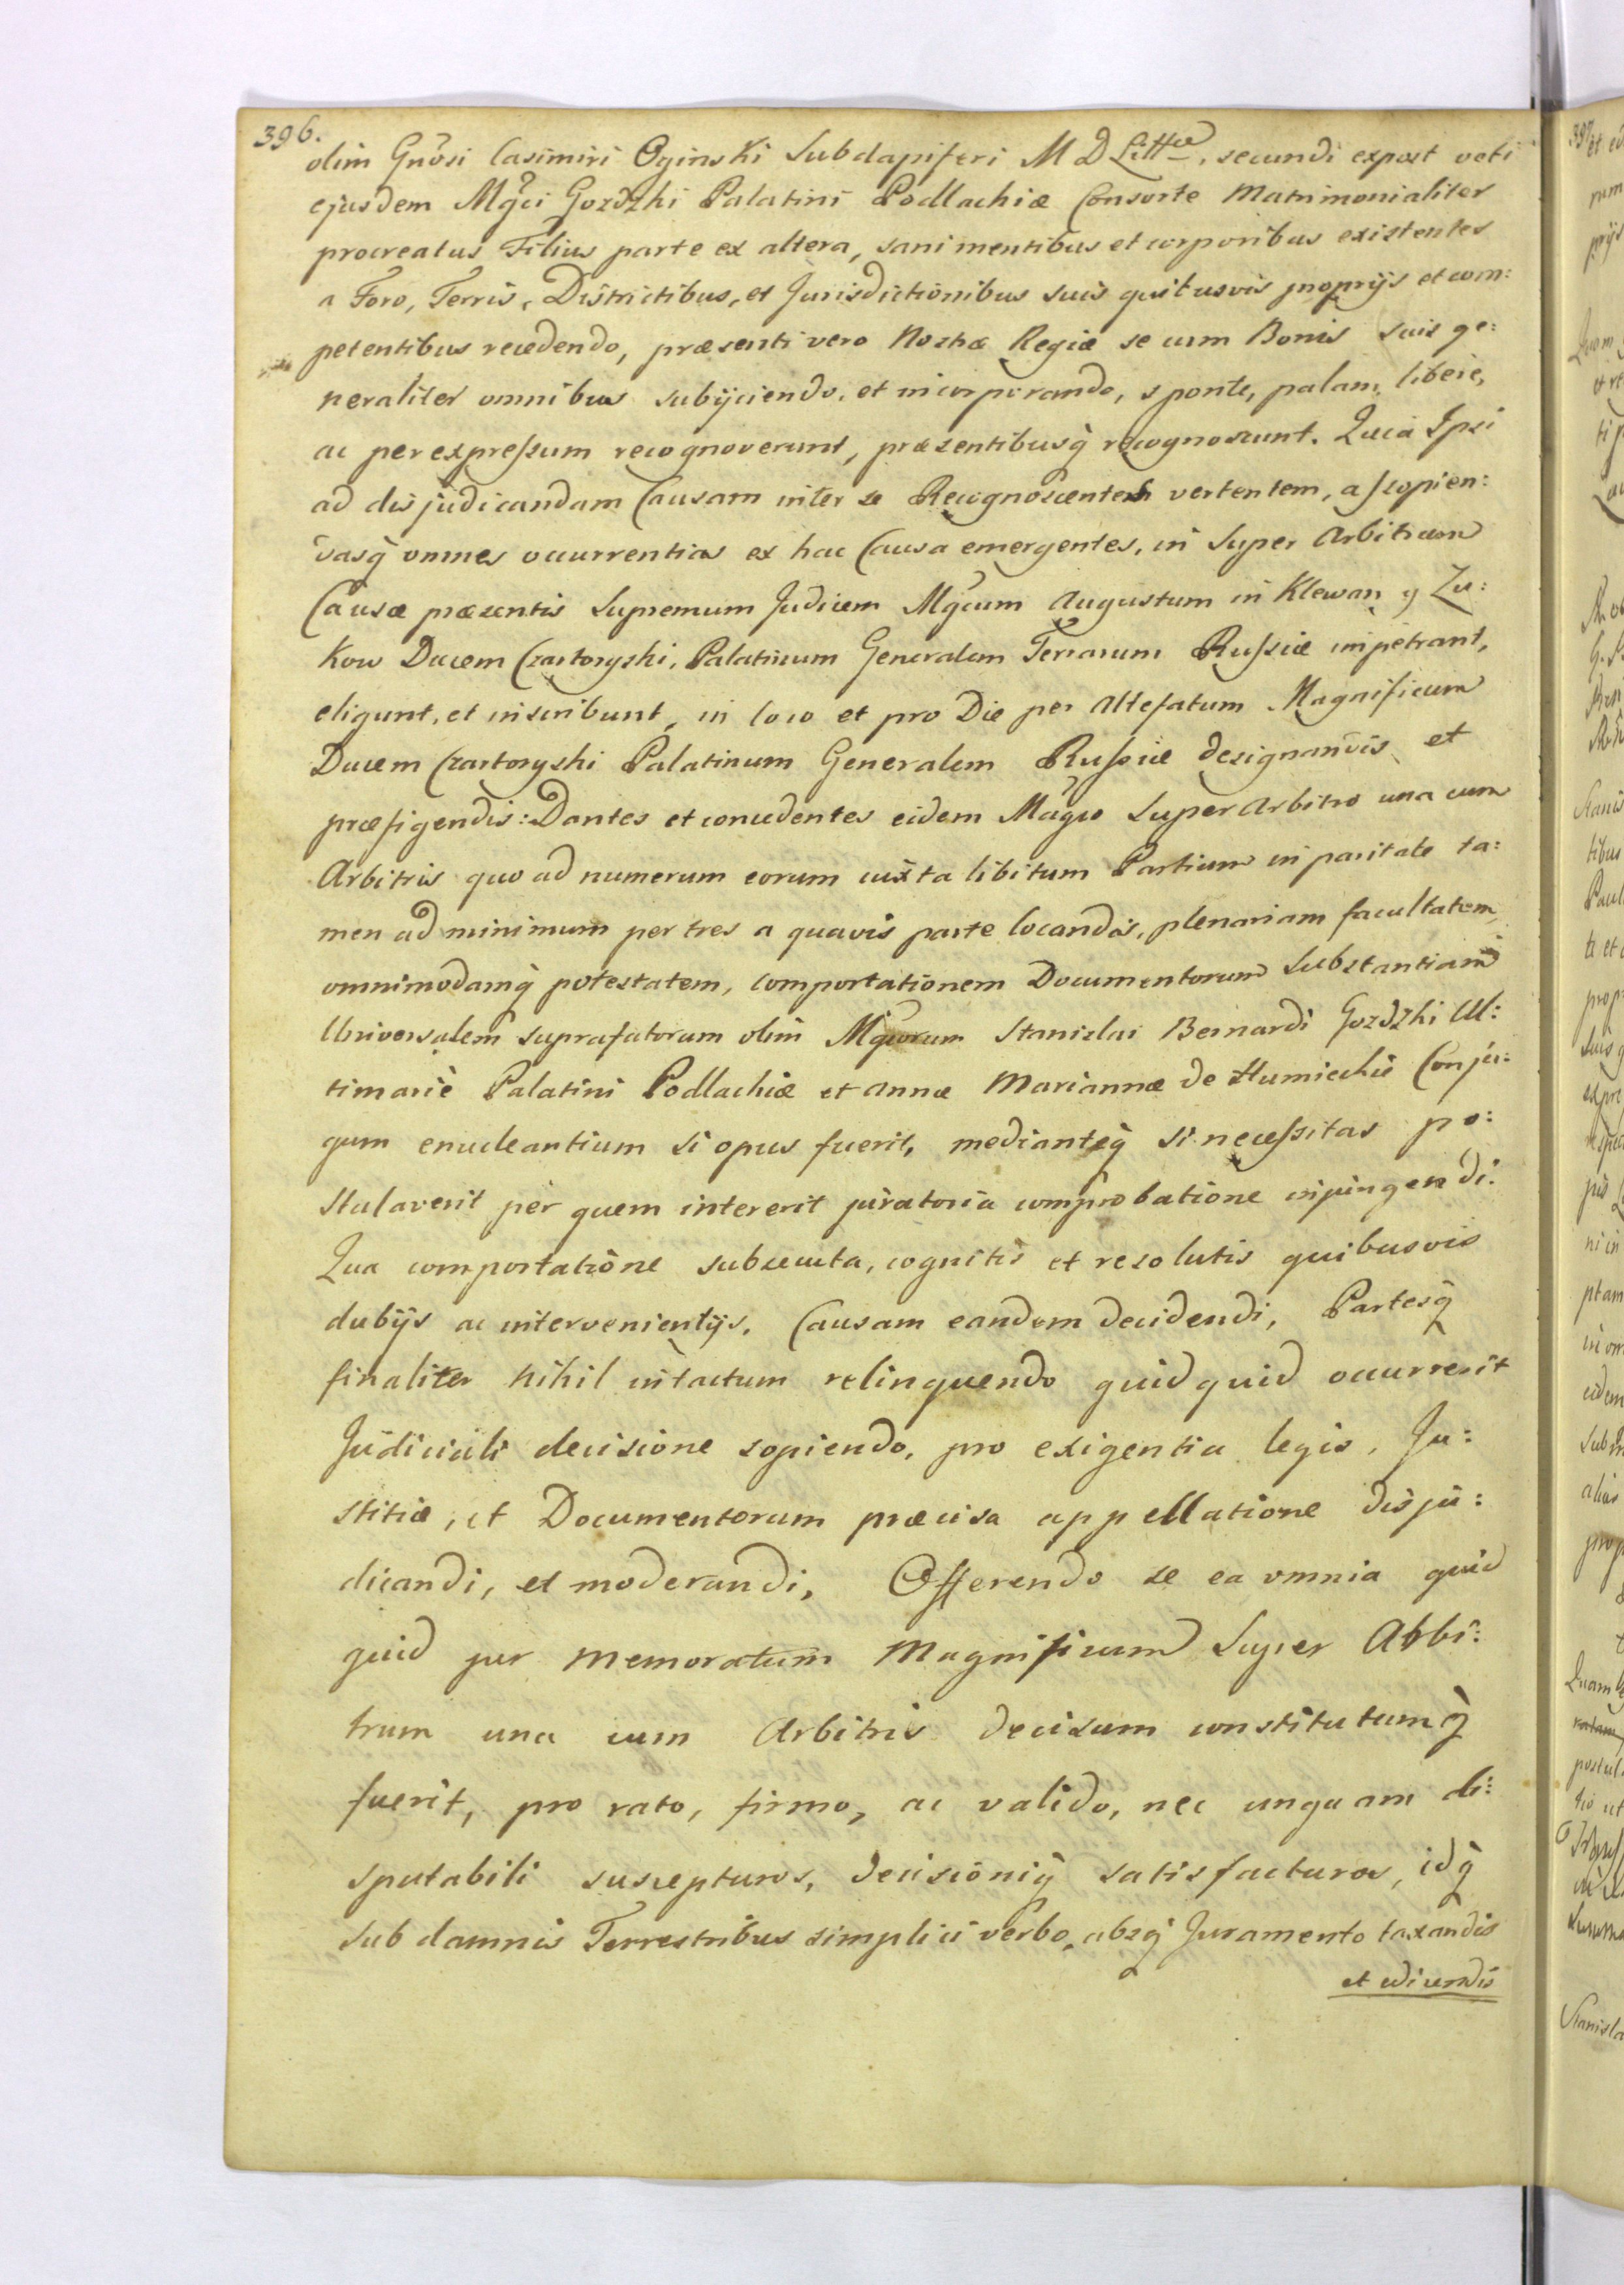 396.
olim Gnosi Casimiri Oginski Subdapiferi M D Littæ, secundi expost voti
ejusdem Mgci Gozdzki Palatini Podlachiæ Consorte Matrimonialiter
procreatus Filius parte ex altera, sani mentibus et corporibus existentes
a Foro, Terris, Districtibus, et Jurisdictionibus suis quibusvis proprijs et com:
petentibus recedendo, præsenti vero Roztræ Regiæ se cum Bonis suis ge:
neraliter omnibus subijciendo, et incorporando, sponte, palam, libere,
ac per expressum recognoverunt, præsentibusq recognoscunt. Quia Ipsi
ad disjudicandam Causam inter se Recognoscentes vertentem, ac sopien:
dasq omnes occurrentias ex hac Causa emergentes, in Super Arbitrum
Causæ præsentis Supremum Judicem Mgcum Augustum in Klewan y Zu:
kow Ducem Czartoryski, Palatinum Generalem Terrarum Russiæ impetrant,
eligunt, et inscribunt, in loco et pro Die per Altefatum Magnificum
Ducem Czartoryski Palatinum Generalem Russiæ designandis et
præfigendis: Dantes et concedentes eidem Magco Super Arbitro una cum
Arbitris quo ad numerum eorum iuxta libitum Partium in paritate ta:
men ad minimum per tres a quavis parte locandis, plenariam facultatem
omnimodamq potestatem, comportationem Documentorum Substantiam
Universalem suprafatorum olim Mgcorum Stanislai Bernardi Gozdzki Ul:
timarie Palatini Podlachiæ et Annæ Mariannæ de Humieckie Conju:
gum enucleantium si opus fuerit, medianteq si necessitas po:
stulaverit per quem intererit juratoria comprobatione injungendi:
Qua comportatione subsecuta, cognitis et resolutis quibusvis
dubijs ac intervenientijs, Causam eandem decidendi, Partesq
finaliter nihil intactum relinquendo quidquid occurrerit
Judiciali decisione sopiendo, pro exigentia legis, Ju:
stitiæ, et Documentorum præcisa appellatione disju:
dicandi, et moderandi, Offerendo se ea omnia quid
quid per memoratum Magnificum Super Abbi:
trum una cum Arbitris decisum constitutumq
fuerit, pro rato, firmo, ac valido, nec unquam di:
sputabili suscepturos, decisioniq satisfacturos, idq
sub damnis Terrestribus simplici verbo, absq Juramento taxandis
et edicendis